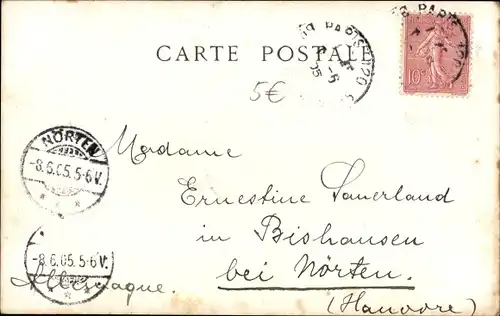 CARTE POSTALE
PARIS
10
5€
NÖRTEN
-8.6.05.5-6V.
-8.6.05.5-6V.
Madame
Ernestine Sauerland
in Bishausen
bei Nörten.
Allemagne.
(Hanovre)